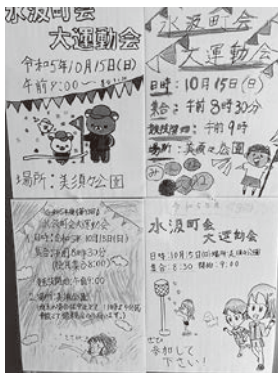 水波町会
大運動会
令和5年10月15日(日)
午前9:00〜
場所:美須々公園
水波町会
大運動会
日時:10月15日(日)
集合:午前8時30分
競技開始:午前9時
場所:美須々公園
水波町会大運動会
日時:令和5年10月15日(日)
集合:午前8時30分
(役員集合8:00)
競技開始:午前9:00
場所:美須々公園
水波町会
大運動会
日時:10月15日(日)場所:美須々公園
集合:8:30 開始:9:00
ぜひ
参加して
下さい!